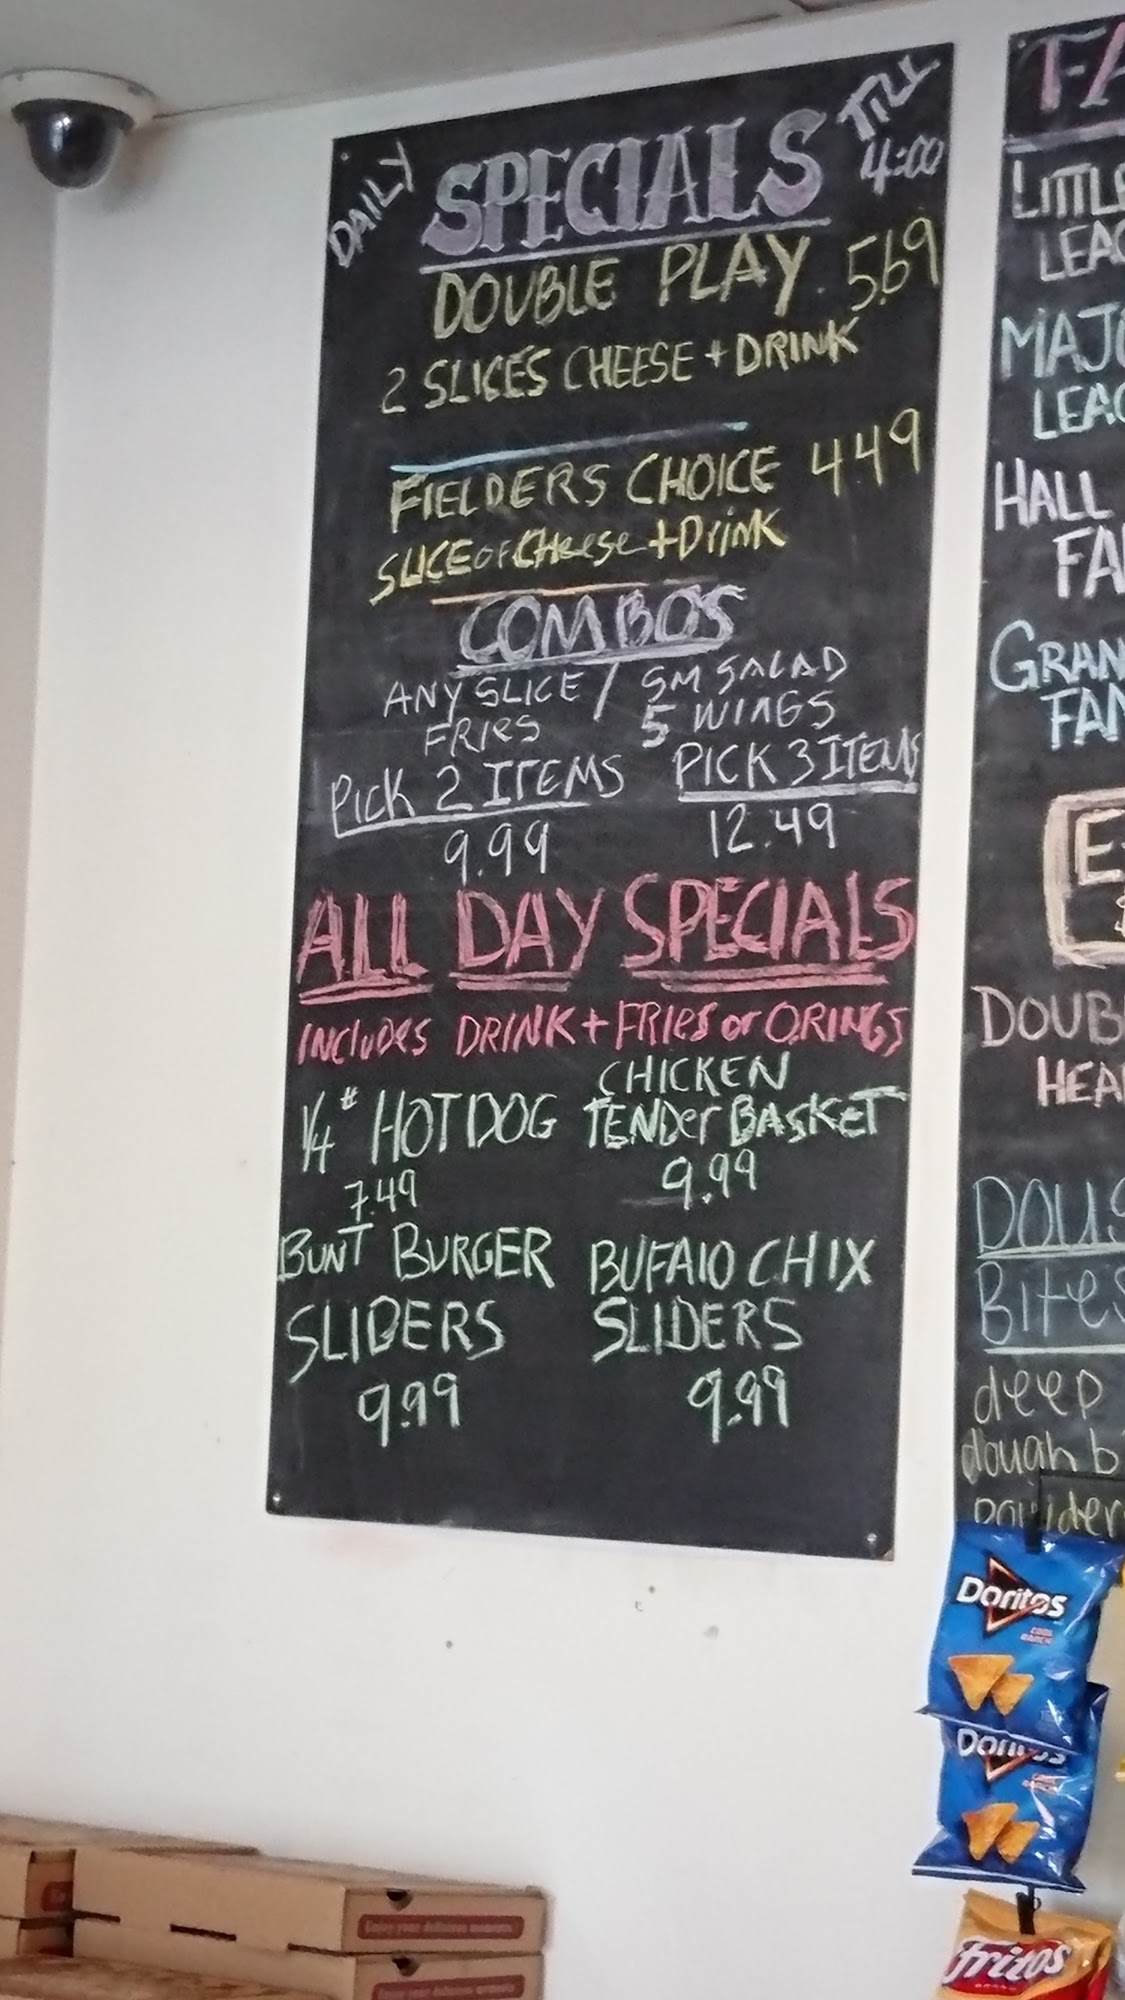 DAILY SPECIALS TILL 4:00
DOUBLE PLAY 5.69
2 SLICES CHEESE + DRINK
FIELDERS CHOICE 449
SLICE OF CHeese + Drink
COMBOS
ANY SLICE / SM SALAD
FRIES 5 WINGS
PICK 2 ITEMS PICK 3 ITEMS
9.99 12.49
ALL DAY SPECIALS
INCLUDES DRINK + FRIES or O.RINGS
1/4 # HOT DOG
7.49
CHICKEN
TENDER BASKET
9.99
BUNT BURGER
SLIDERS
9.99
BUFALO CHIX
SLIDERS
9.99
LITTLE
HALL
deep
dough
Doritos
COOL
RANCH
Doritos
Fritos
Enjoy your delicious moments